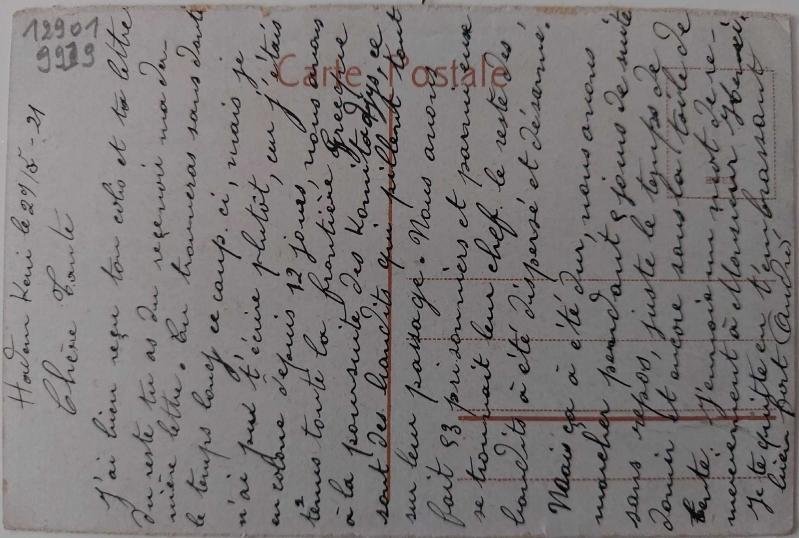 12901
9939
Carte Postale
Hadem Keui le 29/5-21
Chère Tante
J'ai bien reçu ton colis et ta lettre
du reste tu as du reçevoir ma der-
nière lettre. Tu trouveras sans doute
le temps long ce coup-ci, mais je
n'ai pus t'écrire plutôt, car j'étais
en colone depuis 12 jours, nous avons
tenus toute la frontière Grecque
à la poursuite des Komitadjys, ce
sont des bandits qui pillent tout
sur leur passage. Nous avons
fait 83 prisonniers et parmi eux
se trouvait leur chef le reste des
bandits à été dispersé et désarmé.
Mais ça à été dur, nous avons
marcher pendant 8 jours de suite
sans repos, juste le temps de
dormir et encore sous la toile de
tente. J'envoie un mot de re-
merciement à Monsieur
Je te quitte en t'embrassant
bien fort André